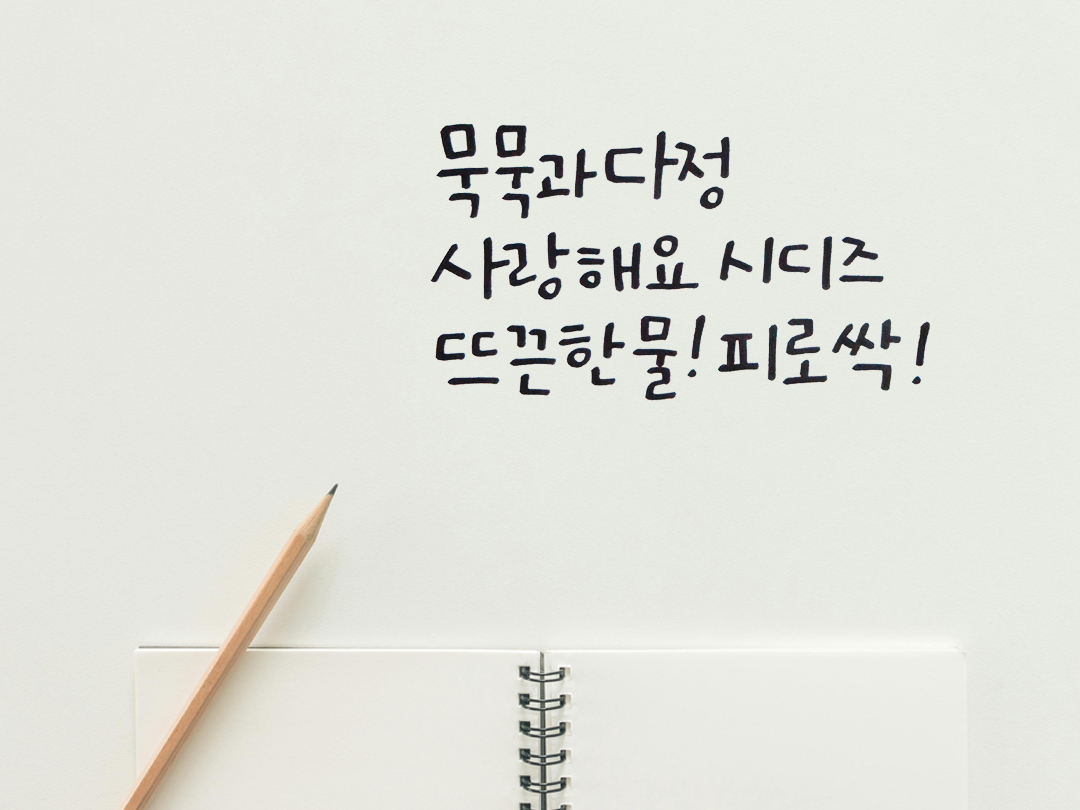 묵묵과 다정
사랑해요 시디즈
뜨끈한 물! 피로 싹!